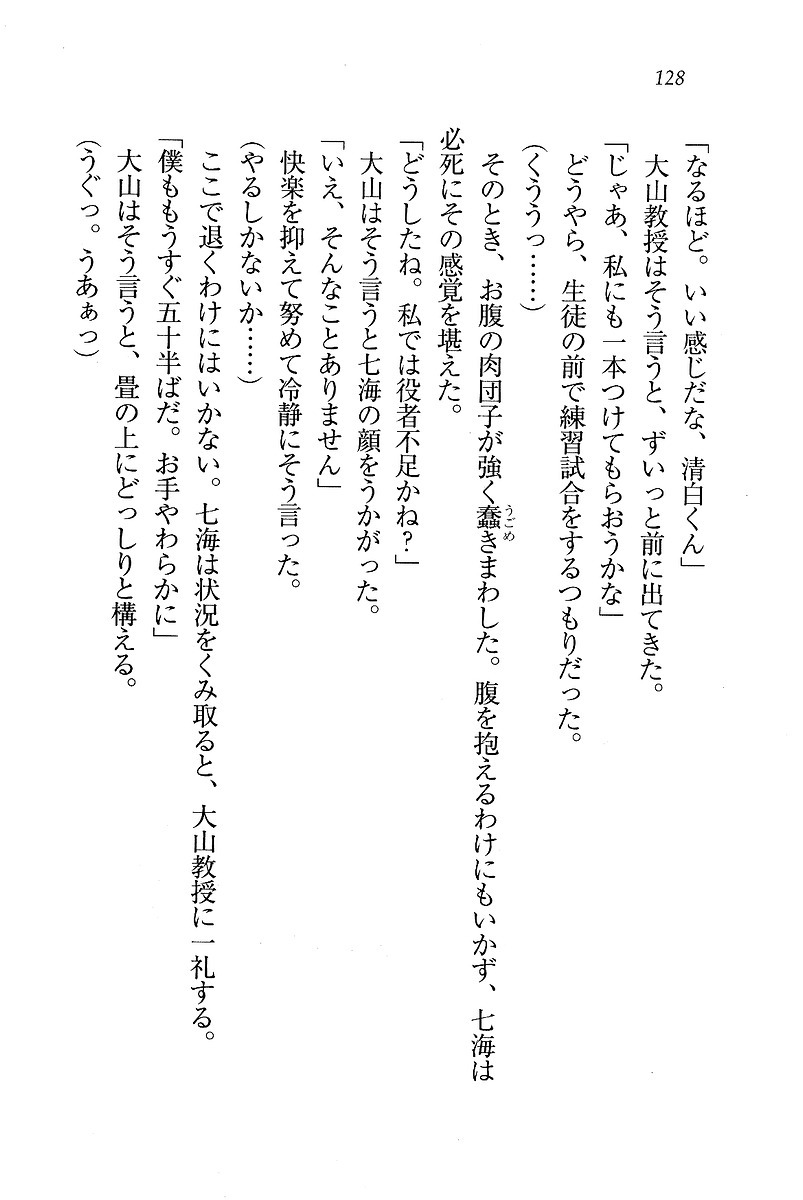 128
「なるほど。いい感じだな、清白くん」
大山教授はそう言うと、ずいっと前に出てきた。
「じゃあ、私にも一本つけてもらおうかな」
どうやら、生徒の前で練習試合をするつもりだった。
（くううっ……）
そのとき、お腹の肉団子が強く蠢きまわした。腹を抱えるわけにもいかず、七海は
うごめ
必死にその感覚を堪えた。
「どうしたね。私では役者不足かね？」
大山はそう言うと七海の顔をうかがった。
「いえ、そんなことありません」
快楽を抑えて努めて冷静にそう言った。
（やるしかないか……）
ここで退くわけにはいかない。七海は状況をくみ取ると、大山教授に一礼する。
「僕ももうすぐ五十半ばだ。お手やわらかに」
大山はそう言うと、畳の上にどっしりと構える。
（うぐっ。うあぁっ）